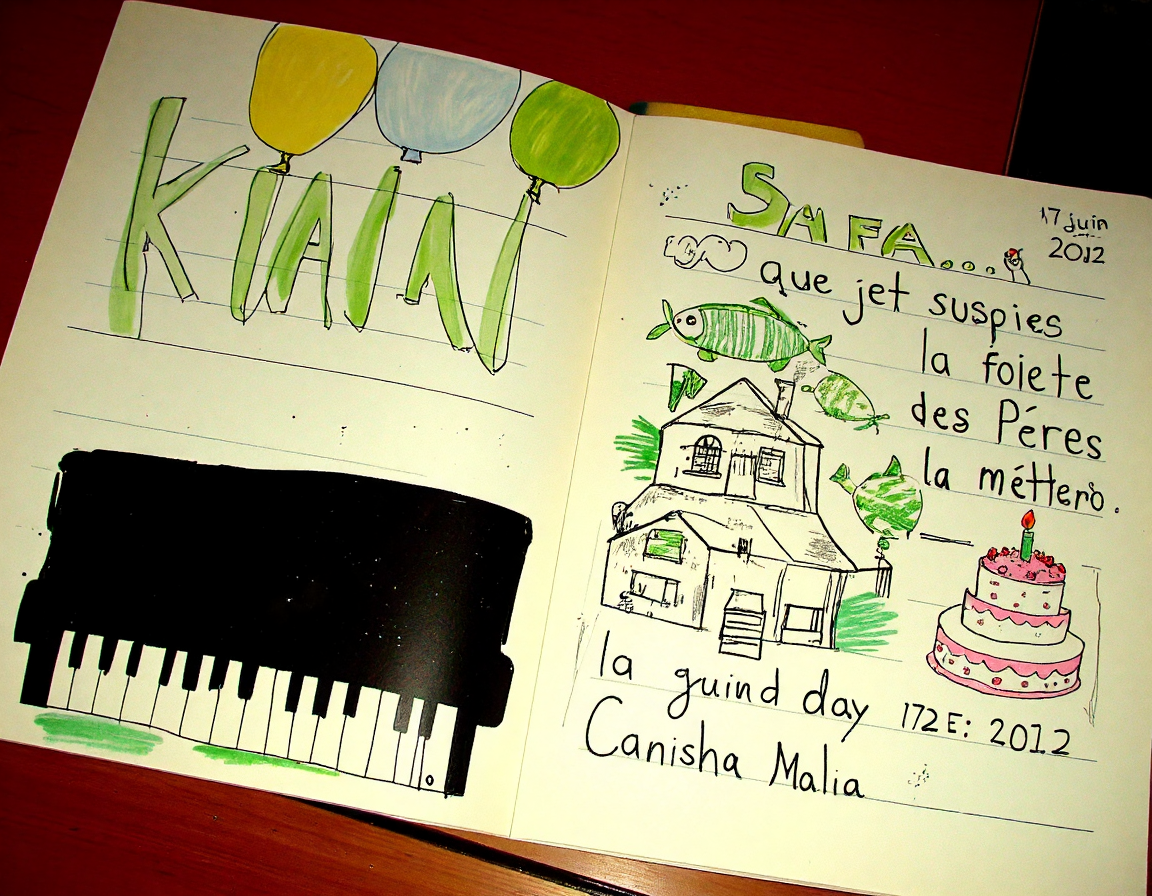 KIAIN
SAFA...
17 juin
2012
que jet suspies
la foiete
des Péres
la méttero.
la guind day 172E: 2012
Canisha Malia